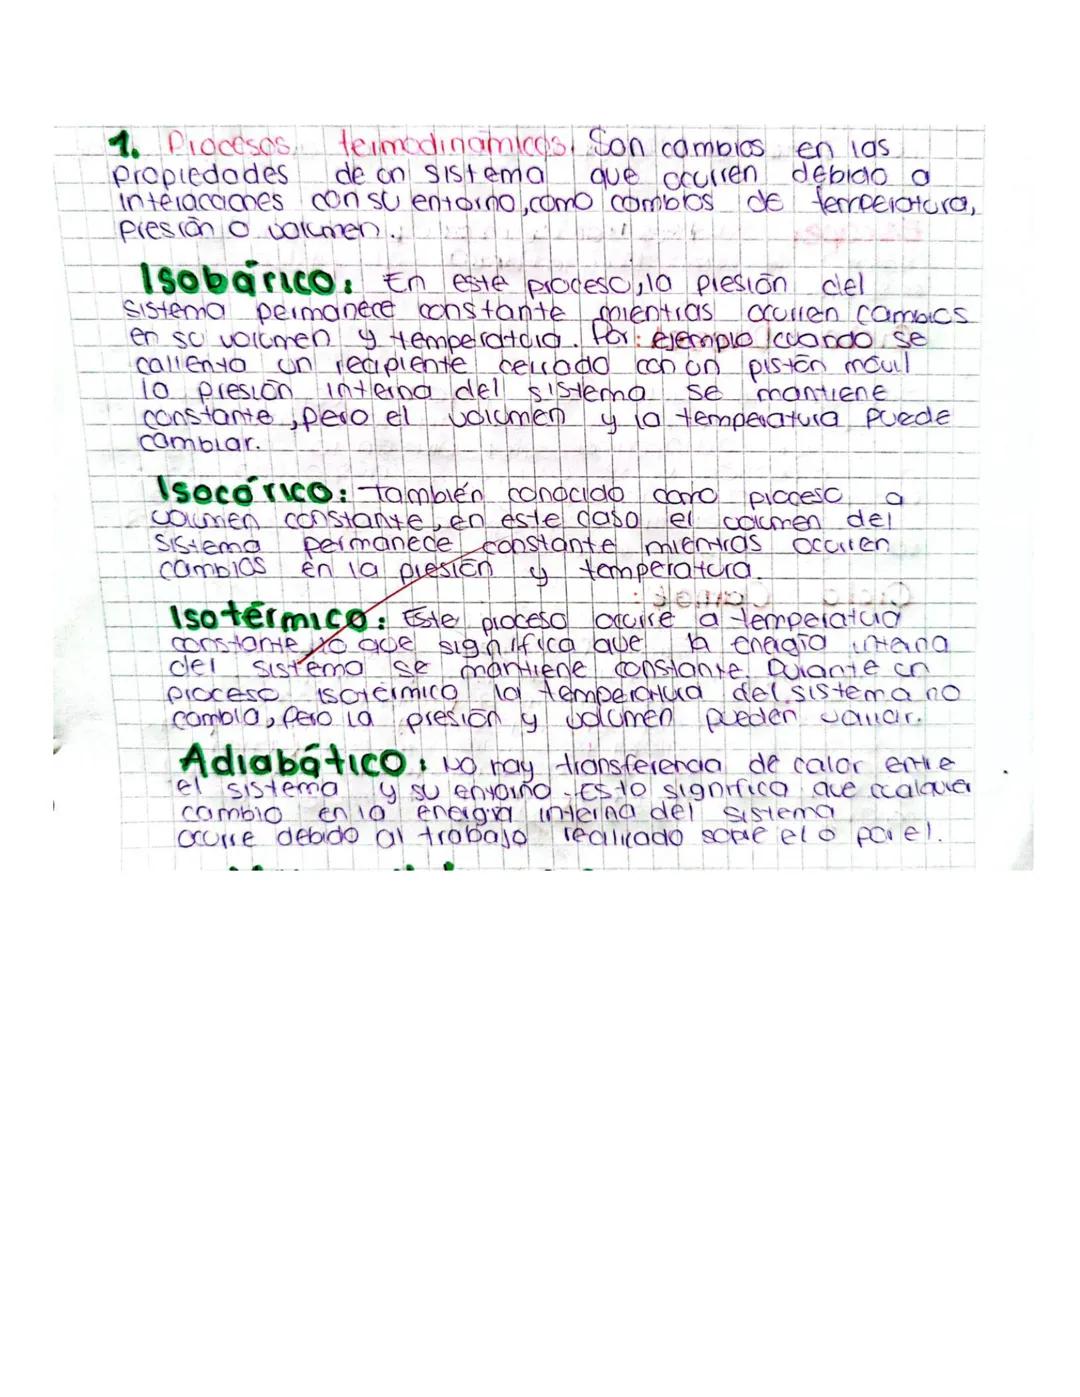 1. Procesos termodinamicos. Son cambios en las
propiedades de un sistema que ocurren debido a
interacciones con su entorno, como cambios de temperatura,
presión o volumen.
Isobárico: En este proceso, la presión del
sistema permanece constante mientras ocurren cambios
en su volumen y temperatura. Por: ejemplo cuando se
calienta un recipiente cerrado con un pistón móvil
la presión interna del sistema se mantiene
constante, pero el volumen y la temperatura puede
cambiar.
Isocórico: también conocido como proceso a
volumen constante, en este caso el volumen del
sistema permanece constante mientras ocurren
cambios en la presión y temperatura.
Isotérmico: Este proceso ocurre a temperatura
constante lo que significa que la energía interna
del sistema se mantiene constante. Durante un
proceso isotérmico la temperatura del sistema no
cambia, pero la presión y volumen pueden variar.
Adiabático: no hay transferencia de calor entre
el sistema y su entorno. Esto significa que cualquier
cambio en la energía interna del sistema
ocurre debido al trabajo realizado sobre el o por el.